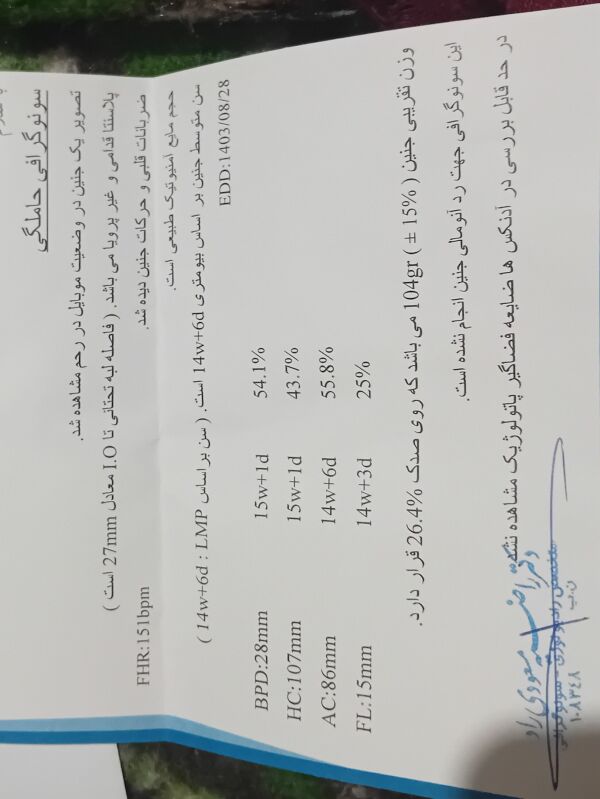 سونوگرافی حاملگی
تصویر یک جنین در وضعیت موبایل در رحم مشاهده شد.
پلاسنتا قدامی و غیر پرویا می باشد. ( فاصله لبه تحتانی تا I.O معادل 27mm است )
ضربانات قلبی و حرکات جنین دیده شد.
FHR:151bpm
حجم مایع امنیوتیک طبیعی است.
سن متوسط جنین بر اساس بیومتری 14w+6d است. ( سن بر اساس LMP : 14w+6d )
EDD:1403/08/28
BPD:28mm 15w+1d 54.1%
HC:107mm 15w+1d 43.7%
AC:86mm 14w+6d 55.8%
FL:15mm 14w+3d 25%
وزن تقریبی جنین ( ± 15% ) 104gr می باشد که روی صدک 26.4% قرار دارد.
این سونوگرافی جهت رد آنومالی جنین انجام نشده است.
در حد قابل بررسی در آدنکس ها ضایعه فضاگیر پاتولوژیک مشاهده نشد
دکتر مسعودی راد
متخصص رادیولوژی - سونوگرافی
ن.پ
۱۰۸۳۴۸